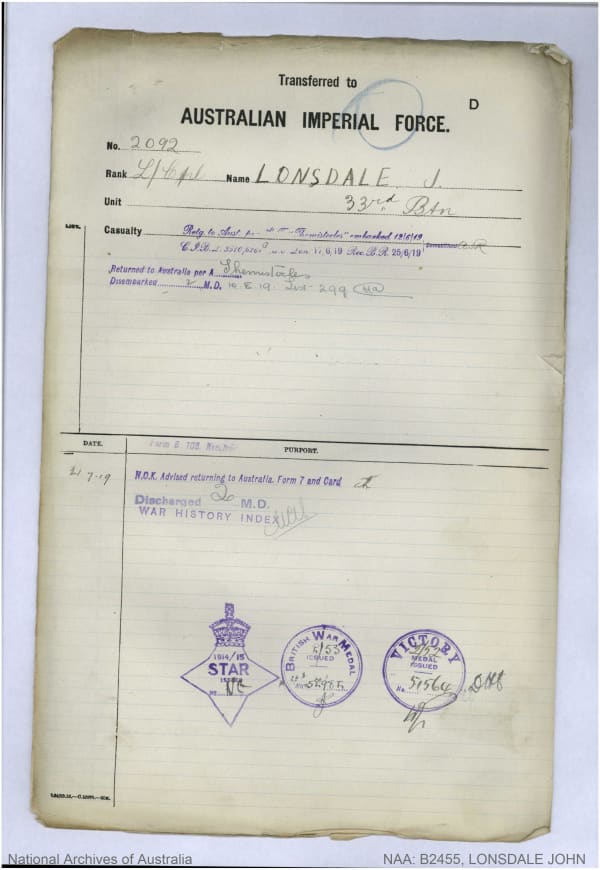 Transferred to
D
AUSTRALIAN IMPERIAL FORCE.
No. 2092
Rank L/Cpl Name LONSDALE. J.
Unit 33rd Btn
LIST.
Casualty Retg. to Aust. per H.T. "Themistocles" embarked 12/6/19
Lon. 6/19 Rec. B.R. 25/6/19
Returned to Australia per A Themistocles
Disembarked 2 M.D. 19 List 299
DATE. Form B 103.
PURPORT.
7-19 N.O.K. Advised returning to Australia. Form 7 and Card
Discharged 2 M.D.
WAR HISTORY INDEX
1914/15
STAR
ISSUED
No
BRITISH WAR MEDAL
ISSUED
No
VICTORY
MEDAL
ISSUED
No. 51564
National Archives of Australia NAA: B2455, LONSDALE JOHN